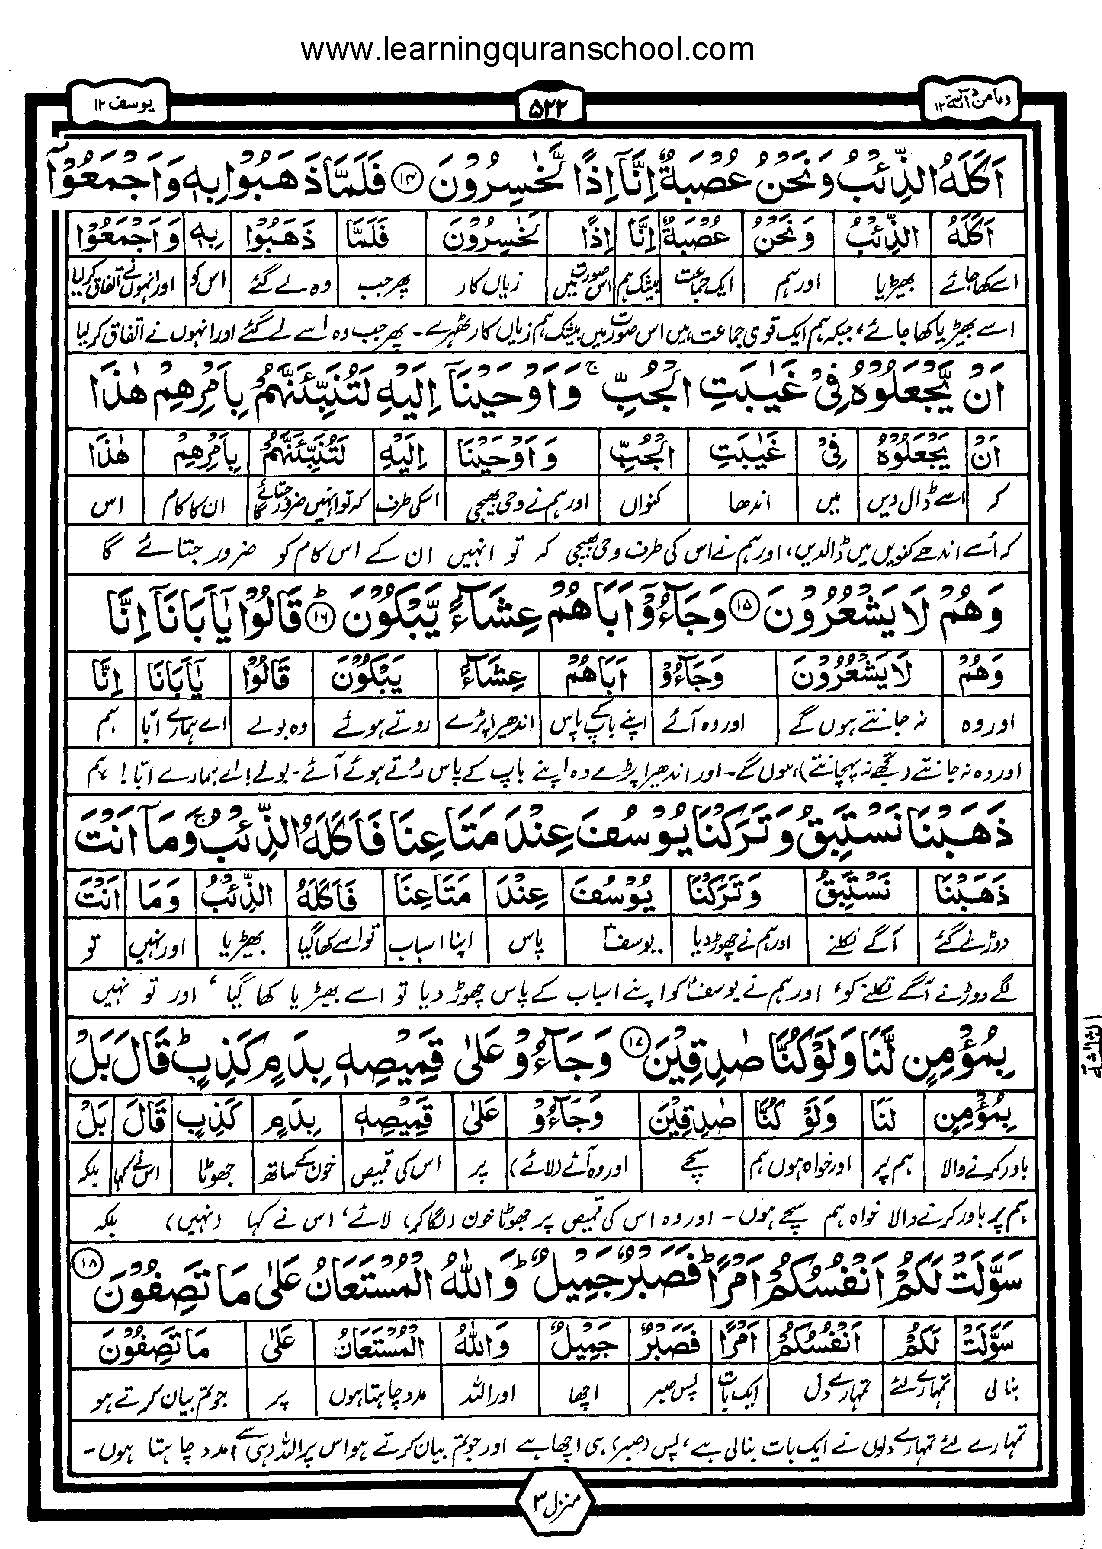 www.learningquranschool.com
یوسف ۱۲
۵۲۲
ومامن دآبة ۱۲
اَكَلَهُ الذِّئْبُ وَنَحْنُ عُصْبَةٌ اِنَّاۤ اِذًا لَّخٰسِرُوْنَ ۱۴ فَلَمَّا ذَهَبُوْا بِهٖ وَاَجْمَعُوْۤا
اَكَلَهُ الذِّئْبُ وَنَحْنُ عُصْبَةٌ اِنَّا اِذًا لَّخٰسِرُوْنَ فَلَمَّا ذَهَبُوْا بِهٖ وَاَجْمَعُوْا
اسے کھا جائے بھیڑیا اور ہم ایک جماعت بیشک ہم اس صورت میں زیاں کار پھر جب وہ لے گئے اس کو اور انہوں نے اتفاق کرلیا
اسے بھیڑیا کھا جائے، جبکہ ہم ایک قوی جماعت ہیں اس صورت میں بیشک ہم زیاں کار ٹھہرے۔ پھر جب وہ اسے لے گئے اور انہوں نے اتفاق کرلیا
اَنْ يَّجْعَلُوْهُ فِيْ غَيٰبَتِ الْجُبِّ ۚ وَاَوْحَيْنَاۤ اِلَيْهِ لَتُنَبِّئَنَّهُمْ بِاَمْرِهِمْ هٰذَا
اَنْ يَّجْعَلُوْهُ فِيْ غَيٰبَتِ الْجُبِّ وَاَوْحَيْنَا اِلَيْهِ لَتُنَبِّئَنَّهُمْ بِاَمْرِهِمْ هٰذَا
کہ اسے ڈال دیں میں اندھا کنواں اور ہم نے وحی بھیجی اسکی طرف کہ تو انہیں ضرور جتائے گا ان کا کام اس
کہ اُسے اندھے کنویں میں ڈالدیں، اور ہم نے اس کی طرف وحی بھیجی کہ تو انہیں ان کے اس کام کو ضرور جتائے گا
وَهُمْ لَا يَشْعُرُوْنَ ۱۵ وَجَآءُوْۤ اَبَاهُمْ عِشَآءً يَّبْكُوْنَ ؕ ۱۶ قَالُوْا يٰۤاَبَانَاۤ اِنَّا
وَهُمْ لَا يَشْعُرُوْنَ وَجَآءُوْ اَبَاهُمْ عِشَآءً يَبْكُوْنَ قَالُوْا يٰۤاَبَانَا اِنَّا
اور وہ نہ جانتے ہوں گے اور وہ آئے اپنے باپ کے پاس اندھیرا پڑے روتے ہوئے وہ بولے اے ہمارے ابّا ہم
اور وہ نہ جانتے (تجھے نہ پہچانتے) ہوں گے۔ اور اندھیرا پڑے وہ اپنے باپ کے پاس روتے ہوئے آئے۔ بولے! اے ہمارے ابّا! ہم
ذَهَبْنَا نَسْتَبِقُ وَتَرَكْنَا يُوْسُفَ عِنْدَ مَتَاعِنَا فَاَكَلَهُ الذِّئْبُ ۚ وَمَاۤ اَنْتَ
ذَهَبْنَا نَسْتَبِقُ وَتَرَكْنَا يُوْسُفَ عِنْدَ مَتَاعِنَا فَاَكَلَهُ الذِّئْبُ وَمَا اَنْتَ
دوڑنے گئے آگے نکلنے اور ہم نے چھوڑ دیا یوسف پاس اپنا اسباب تو اسے کھا گیا بھیڑیا اور نہیں تو
لگے دوڑنے آگے نکلنے کو، اور ہم نے یوسف کو اپنے اسباب کے پاس چھوڑ دیا تو اسے بھیڑیا کھا گیا، اور تو نہیں
بِمُؤْمِنٍ لَّنَا وَلَوْ كُنَّا صٰدِقِيْنَ ۱۷ وَجَآءُوْ عَلٰى قَمِيْصِهٖ بِدَمٍ كَذِبٍ ؕ قَالَ بَلْ
الثلثة
بِمُؤْمِنٍ لَنَا وَلَوْ كُنَّا صٰدِقِيْنَ وَجَآءُوْ عَلٰى قَمِيْصِهٖ بِدَمٍ كَذِبٍ قَالَ بَلْ
باور کرنے والا ہم پر اور خواہ ہوں ہم سچے اور وہ آئے (لائے) پر اس کی قمیص خون کے ساتھ جھوٹا اس نے کہا بلکہ
ہم پر باور کرنے والا خواہ ہم سچے ہوں۔ اور وہ اس کی قمیص پر جھوٹا خون (لگا کر) لائے، اس نے کہا (نہیں) بلکہ
سَوَّلَتْ لَكُمْ اَنْفُسُكُمْ اَمْرًا ؕ فَصَبْرٌ جَمِيْلٌ ؕ وَاللّٰهُ الْمُسْتَعَانُ عَلٰى مَا تَصِفُوْنَ ۱۸
سَوَّلَتْ لَكُمْ اَنْفُسُكُمْ اَمْرًا فَصَبْرٌ جَمِيْلٌ وَاللّٰهُ الْمُسْتَعَانُ عَلٰى مَا تَصِفُوْنَ
بنالی تمہارے لئے تمہارے دل ایک بات پس صبر اچھا اور اللہ مدد چاہتا ہوں پر جو تم بیان کرتے ہو
تمہارے لئے تمہارے دلوں نے ایک بات بنالی ہے، پس (صبر) ہی اچھا ہے اور جو تم بیان کرتے ہو اس پر اللہ (ہی) سے مدد چاہتا ہوں۔
منزل ۳